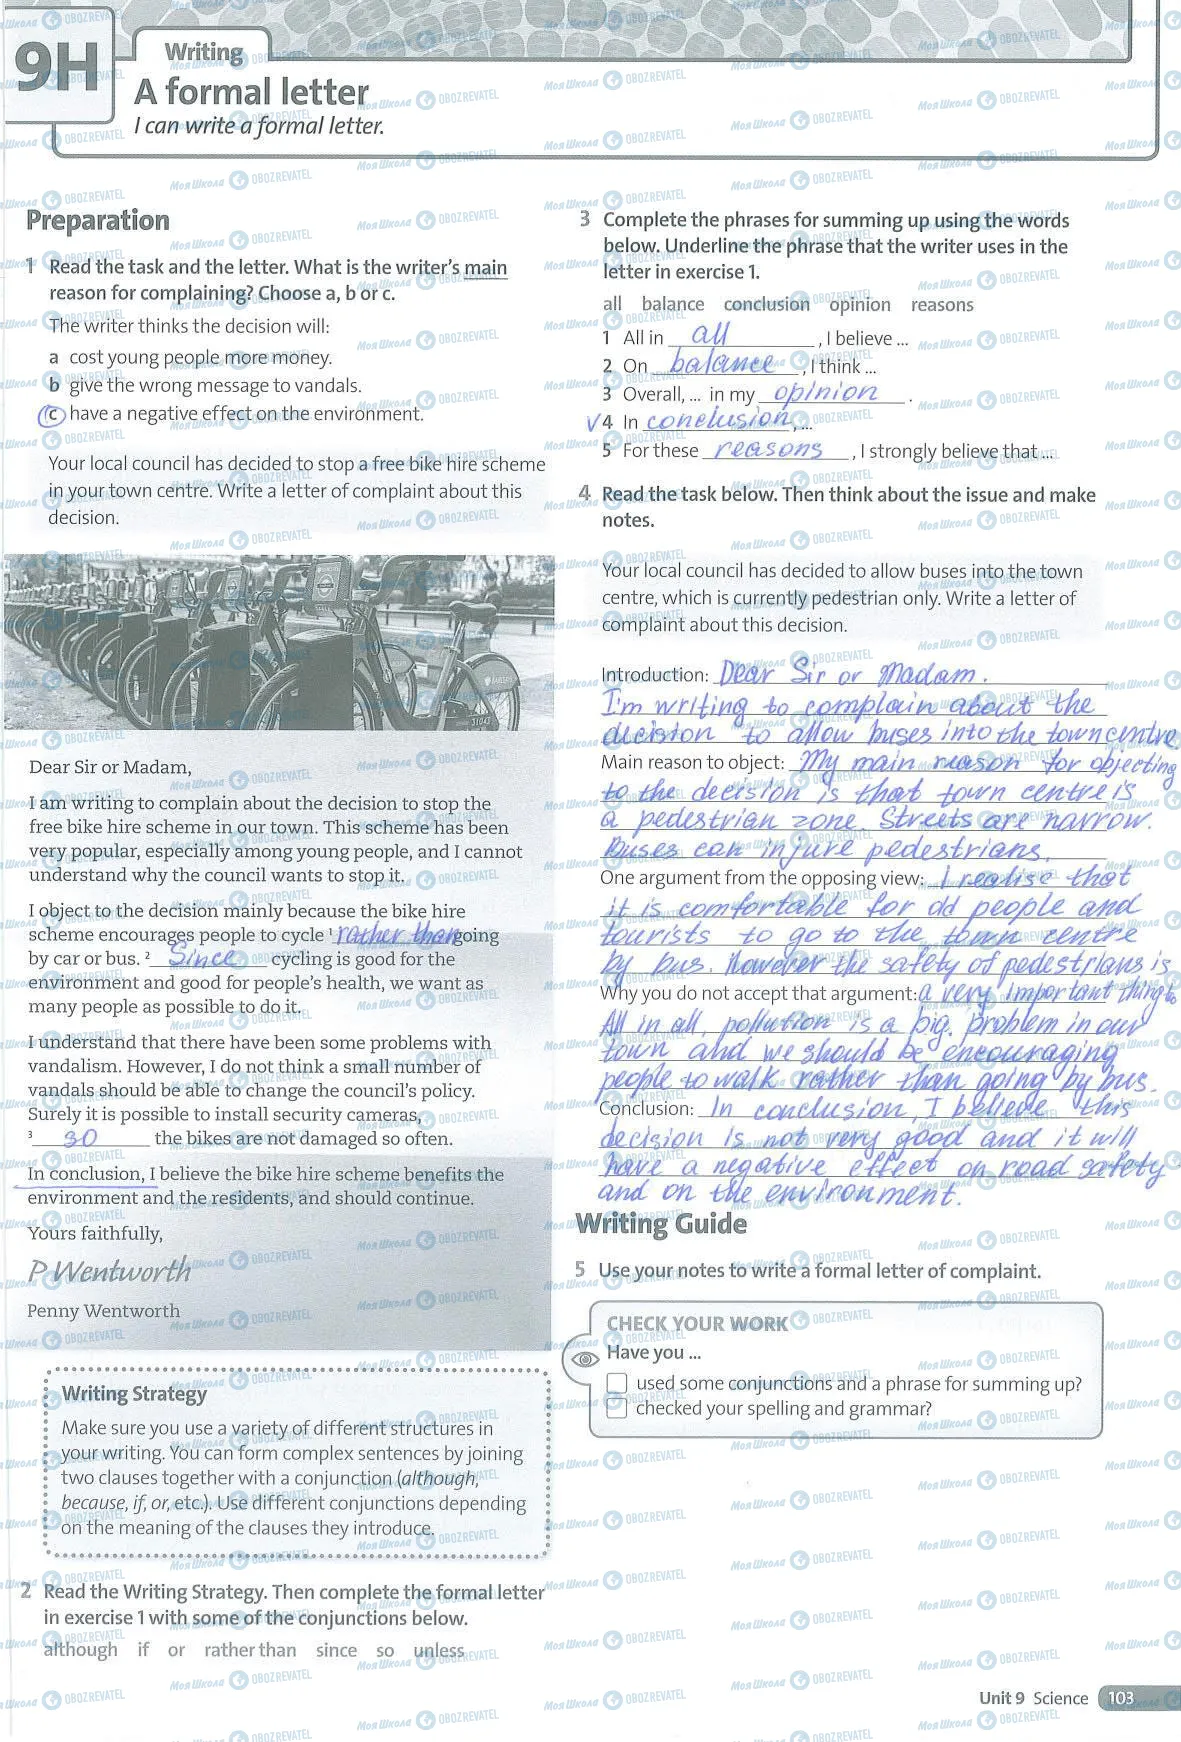 9H
Writing
A formal letter
I can write a formal letter.
Preparation
1 Read the task and the letter. What is the writer's main
reason for complaining? Choose a, b or c.
The writer thinks the decision will:
a cost young people more money.
b give the wrong message to vandals.
c have a negative effect on the environment.
Your local council has decided to stop a free bike hire scheme
in your town centre. Write a letter of complaint about this
decision.
31043
Dear Sir or Madam,
I am writing to complain about the decision to stop the
free bike hire scheme in our town. This scheme has been
very popular, especially among young people, and I cannot
understand why the council wants to stop it.
I object to the decision mainly because the bike hire
scheme encourages people to cycle 1 rather than going
by car or bus. 2 Since cycling is good for the
environment and good for people's health, we want as
many people as possible to do it.
I understand that there have been some problems with
vandalism. However, I do not think a small number of
vandals should be able to change the council's policy.
Surely it is possible to install security cameras,
3 so the bikes are not damaged so often.
In conclusion, I believe the bike hire scheme benefits the
environment and the residents, and should continue.
Yours faithfully,
P Wentworth
Penny Wentworth
Writing Strategy
Make sure you use a variety of different structures in
your writing. You can form complex sentences by joining
two clauses together with a conjunction (although,
because, if, or, etc.). Use different conjunctions depending
on the meaning of the clauses they introduce.
2 Read the Writing Strategy. Then complete the formal letter
in exercise 1 with some of the conjunctions below.
although if or rather than since so unless
3 Complete the phrases for summing up using the words
below. Underline the phrase that the writer uses in the
letter in exercise 1.
all balance conclusion opinion reasons
1 All in all, I believe ...
2 On balance, I think ...
3 Overall, ... in my opinion.
√4 In conclusion, ...
5 For these reasons, I strongly believe that ...
4 Read the task below. Then think about the issue and make
notes.
Your local council has decided to allow buses into the town
centre, which is currently pedestrian only. Write a letter of
complaint about this decision.
Introduction: Dear Sir or Madam.
I'm writing to complain about the
decision to allow buses into the town centre
Main reason to object: My main reason for objecting
to the decision is that town centre is
a pedestrian zone. Streets are narrow.
Buses can injure pedestrians.
One argument from the opposing view: I realise that
it is comfortable for old people and
tourists to go to the town centre
by bus. However the safety of pedestrians is
Why you do not accept that argument: a very important thing to
All in all, pollution is a big problem in our
town and we should be encouraging
people to walk rather than going by bus.
Conclusion: In conclusion, I believe this
decision is not very good and it will
have a negative effect on road safety
and on the environment.
Writing Guide
5 Use your notes to write a formal letter of complaint.
CHECK YOUR WORK
Have you ...
used some conjunctions and a phrase for summing up?
checked your spelling and grammar?
Unit 9 Science 103
Моя Школа OBOZREVATEL